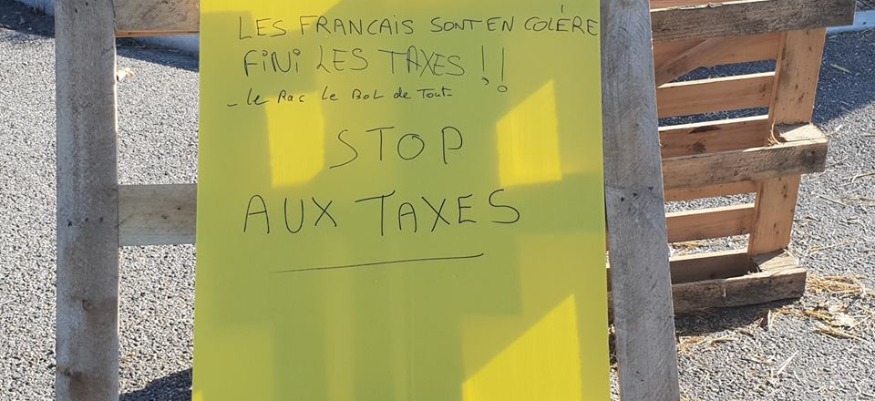 LES FRANCAIS SONT EN COLÈRE
FINI LES TAXES !!
- Le Ras Le Bol de Tout
STOP
AUX TAXES